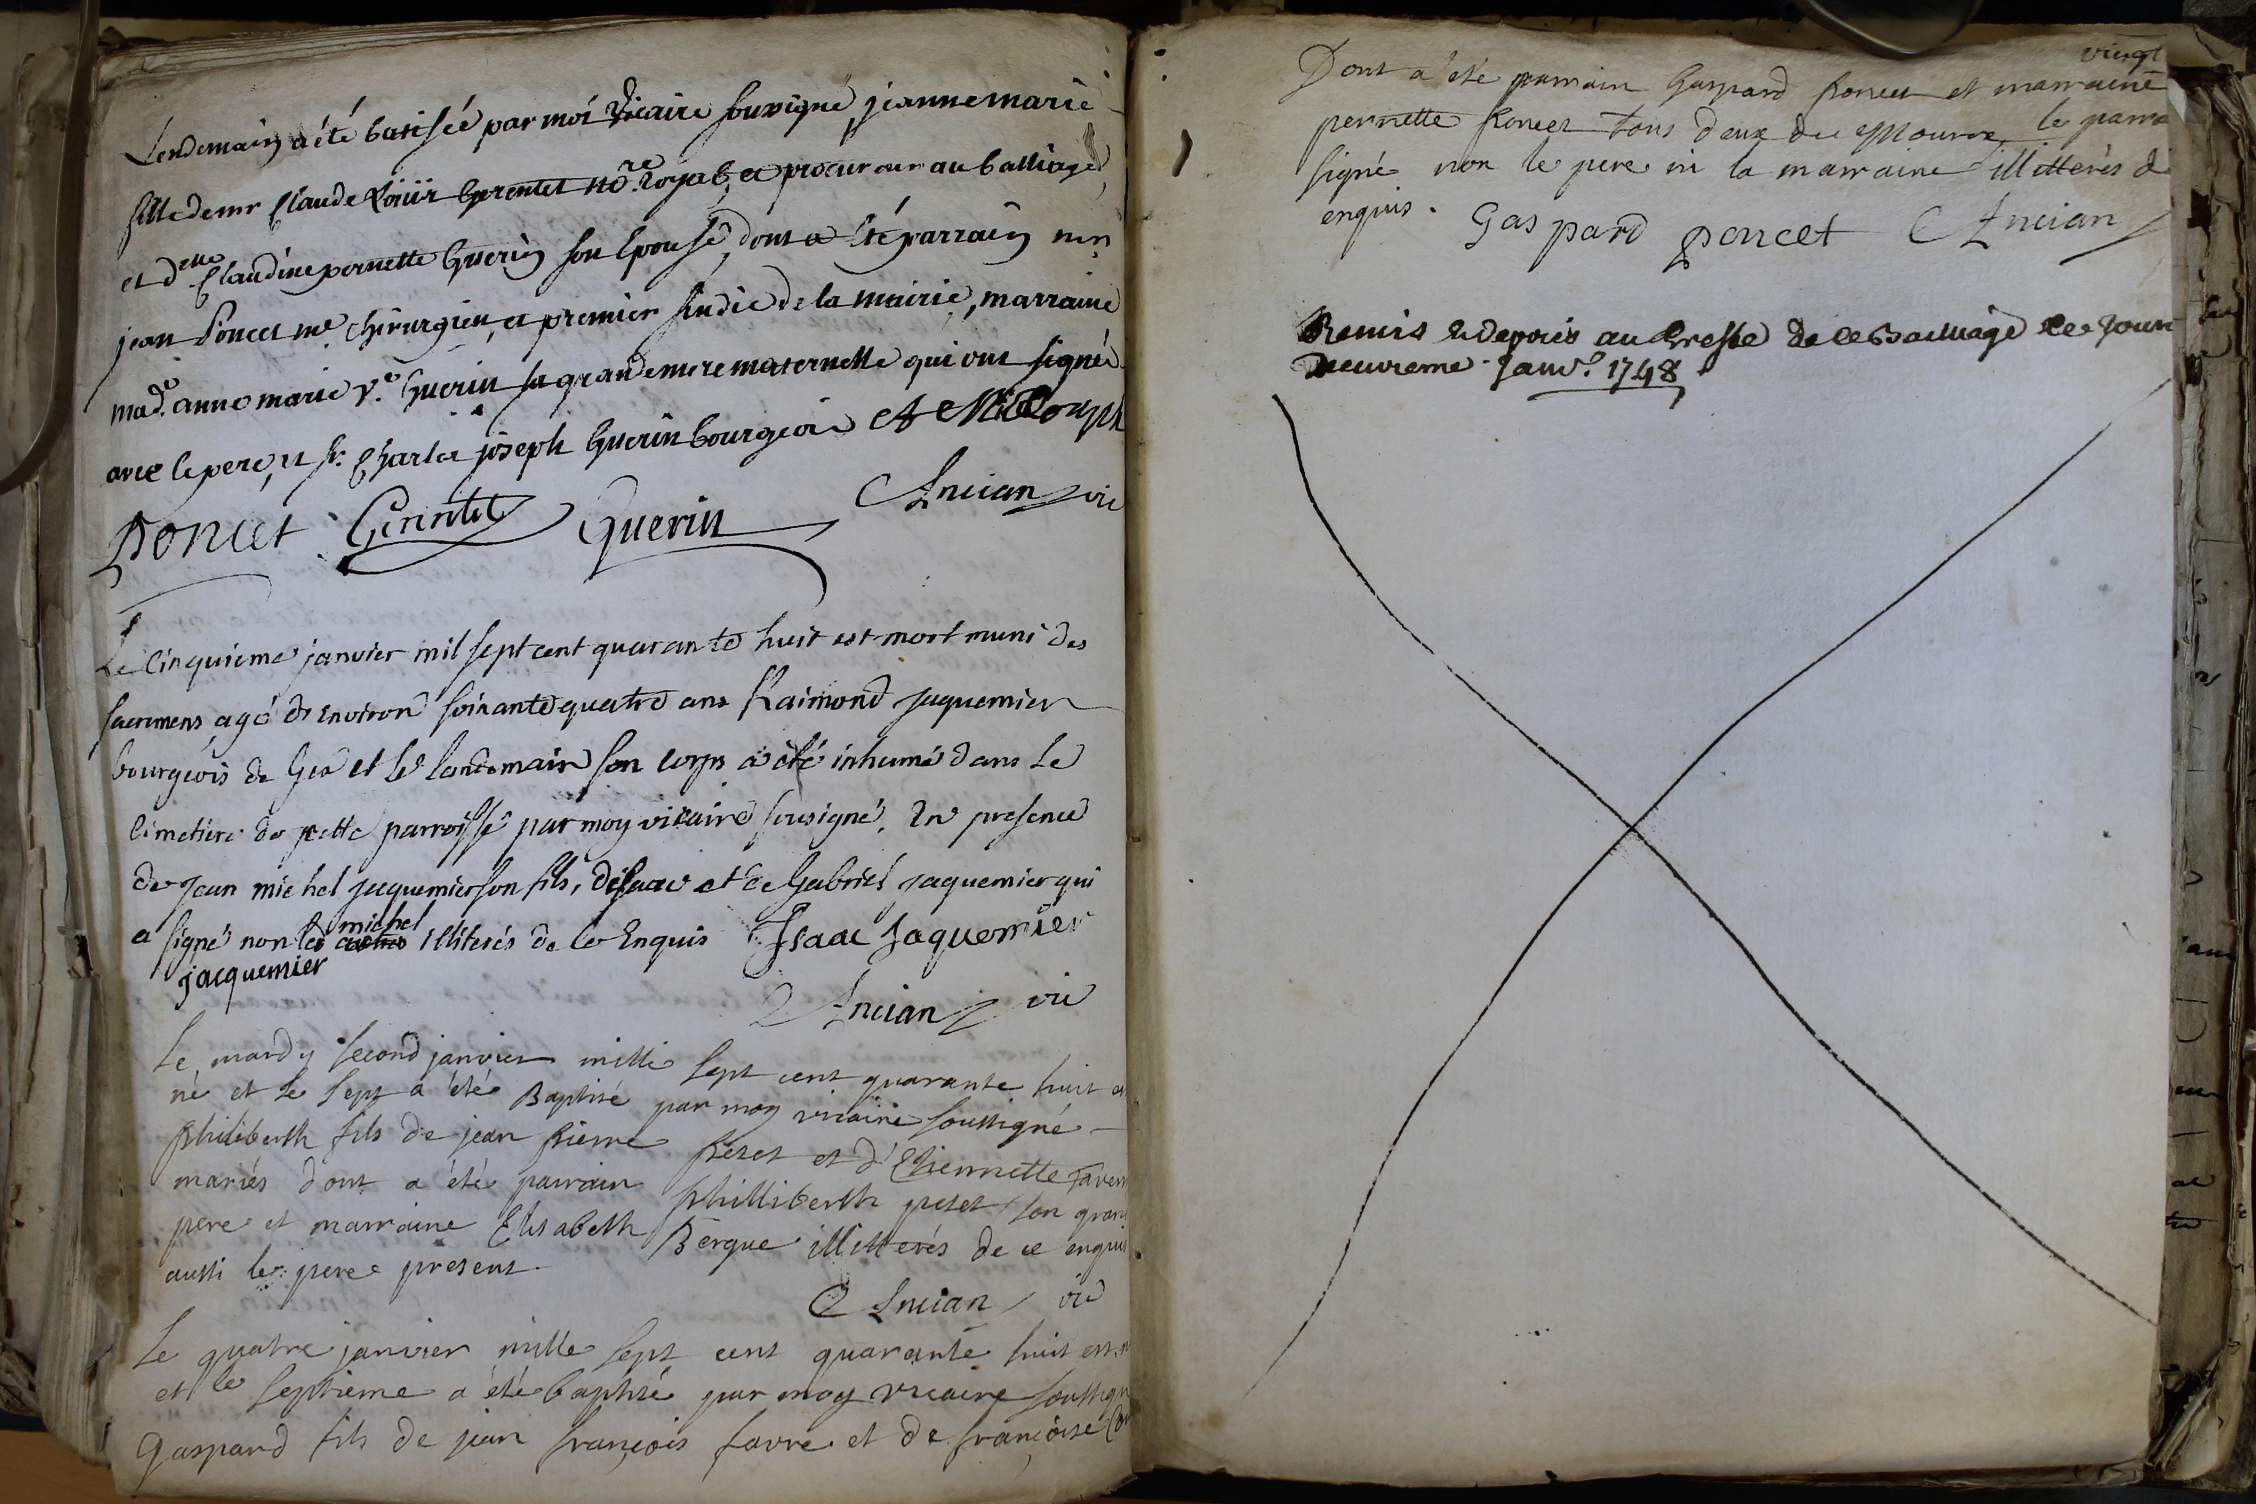 Lendemain a été batisée par moi Vicaire soussigné, jeanne marie
fille de mr Claude Loüis Gerentet no.re Royal, et procureur au balliage,
et d.elle Claudine pernette Guerin son Epouse, dont a été parrain mr
jean Poncet me chirurgien, et premier sindic de la mairie, marraine
mad.e anne marie v.e Guerin sa grandemere maternelle qui ont signé
avec le pere, et sr. Charles joseph Guerin bourgeois
Poncet Gerentet Guerin Ancian vic
Le Cinquieme janvier mil sept cent quarante huit est mort muni des
sacremens, agé d'Environ soixante quatre ans Raimond jaquemier
bourgeois de Gex et le landemain son corps a été inhumé dans le
Cimetiere de cette parroisse par moy vicaire sousigné. En presence
de Jean michel jaquemier son fils, d'isaac et de Gabriel jaquemier qui
a signé non les autres michel illiterés de ce Enquis Isaac Jaquemier
jacquemier
Ancian vic
Le mardy second janvier mille sept cent quarante huit es
né et le sept a été Baptisé par moy vicaire soussigné
philiberth fils de jean pierre petet et d'Etiennette
mariés dont a été parrain philliberth petet son gran
pere et marraine Elisabeth Bergue illitterés de ce enqui
aussi le pere present.
Ancian vic
Le quatre janvier mille sept cent quarante huit est
et le septieme a été baptisé par moy vicaire soussign
Gaspard fils de jean françois favre et de françoise
vingt
Dont a été parrain Gaspard Poncet et marraine
pernette Poncet tous deux de Mourex, le parra
signé non le pere ni la marraine illitterés d
enquis.
Gaspard poncet Ancian
Remis et deposé au Greffe de ce Bailliage ce jour
neuvieme Janv.r 1748